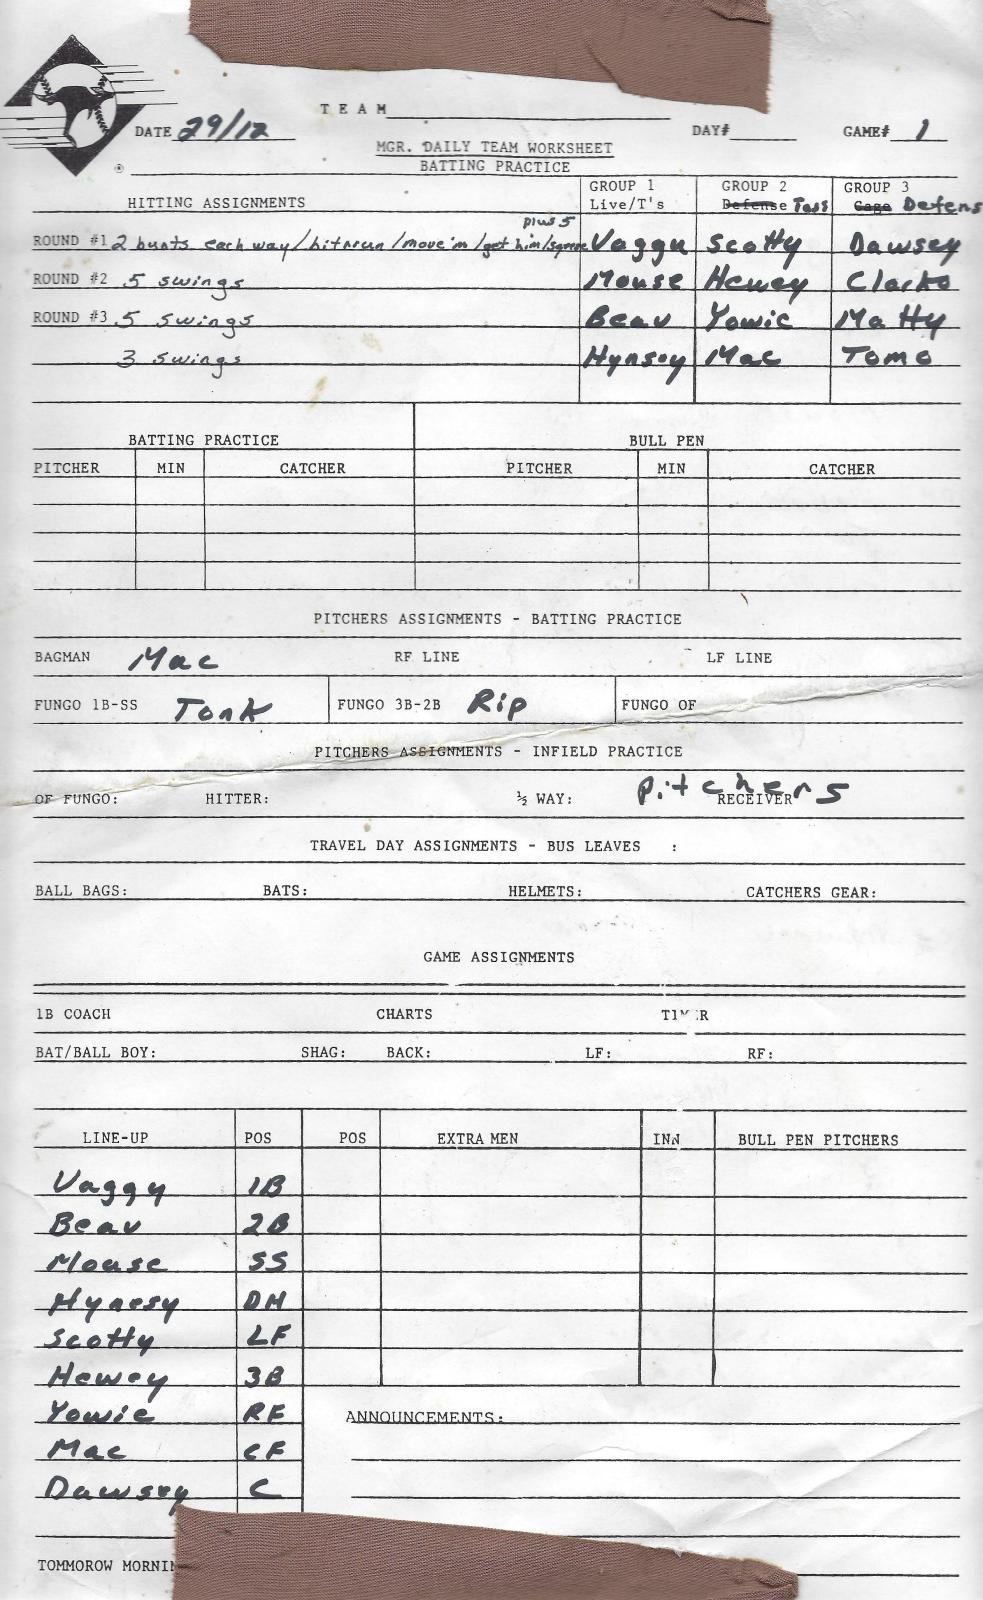 TEAM
DATE 29/12 DAY# GAME# 1
MGR. DAILY TEAM WORKSHEET
BATTING PRACTICE
HITTING ASSIGNMENTS GROUP 1 GROUP 2 GROUP 3
Live/T's Defense Toss Cage Defens
plus 5
ROUND #1 2 bunts each way/hitnrun/move'm/get him/sqeeze Vaggy Scotty Dawsey
ROUND #2 5 swings Mouse Hewey Clarko
ROUND #3 5 swings Beav Yowie Matty
3 swings Hynesy Mac Tomo
BATTING PRACTICE BULL PEN
PITCHER MIN CATCHER PITCHER MIN CATCHER
PITCHERS ASSIGNMENTS - BATTING PRACTICE
BAGMAN Mac RF LINE LF LINE
FUNGO 1B-SS Tonk FUNGO 3B-2B Rip FUNGO OF
PITCHERS ASSIGNMENTS - INFIELD PRACTICE
OF FUNGO: HITTER: ½ WAY: RECEIVER Pitchers
TRAVEL DAY ASSIGNMENTS - BUS LEAVES :
BALL BAGS: BATS: HELMETS: CATCHERS GEAR:
GAME ASSIGNMENTS
1B COACH CHARTS TIMER
BAT/BALL BOY: SHAG: BACK: LF: RF:
LINE-UP POS POS EXTRA MEN INN BULL PEN PITCHERS
Vaggy 1B
Beav 2B
Mouse SS
Hynesy DH
Scotty LF
Hewey 3B
Yowie RF
Mac CF
Dawsey C
ANNOUNCEMENTS:
TOMMOROW MORNIN